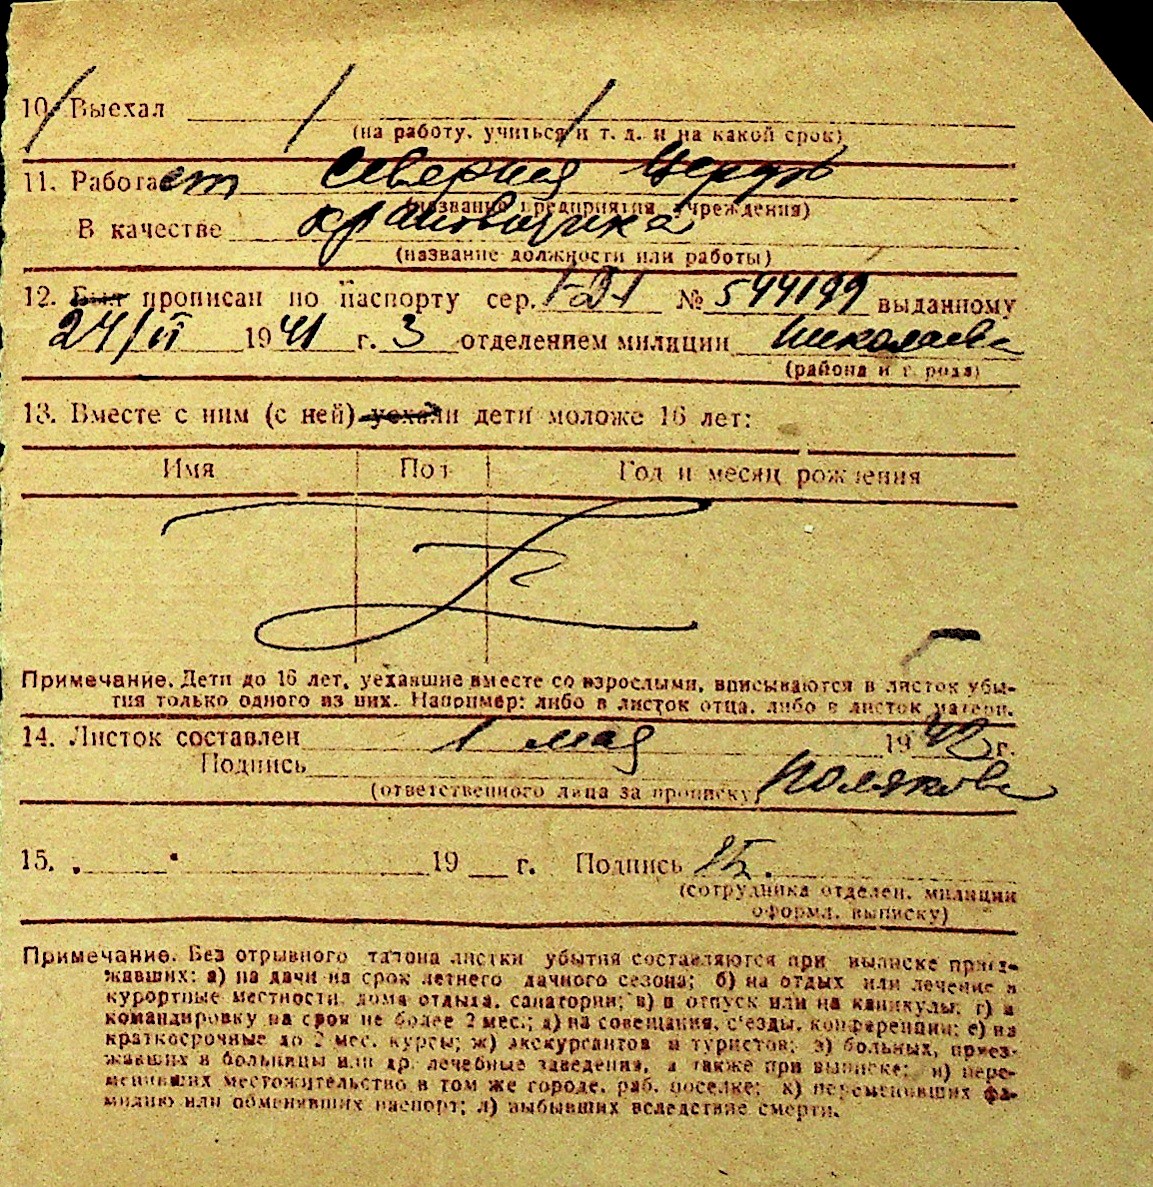 10. Выехал
(на работу, учиться и т. д. и на какой срок)
11. Работает Северная
(название предприятия учреждения)
В качестве крановщика
(название должности или работы)
12. Был прописан по паспорту сер. № 544199 выданному
24/II 1941 г. 3 отделением милиции Николаева
(района и города)
13. Вместе с ним (с ней) уехали дети моложе 16 лет:
Имя Пол Год и месяц рождения
Примечание. Дети до 16 лет, уехавшие вместе со взрослыми, вписываются в листок убы-
тия только одного из них. Например: либо в листок отца, либо в листок матери.
14. Листок составлен 1 мая 1942 г.
Подпись Полякова
(ответственного лица за прописку)
15. 19 г. Подпись
(сотрудника отделен. милиции
оформл. выписку)
Примечание. Без отрывного талона листки убытия составляются при выписке приез-
жавших: а) на дачи на срок летнего дачного сезона; б) на отдых или лечение в
курортные местности, дома отдыха, санатории; в) в отпуск или на каникулы; г) в
командировку на срок не более 2 мес.; д) на совещания, с'езды, конференции; е) на
краткосрочные до 2 мес. курсы; ж) экскурсантов и туристов; з) больных, приез-
жавших в больницы или др. лечебные заведения, а также при выписке: и) пере-
менивших местожительство в том же городе, раб. поселке; к) переменивших фа-
милию или обменивших паспорт; л) выбывших вследствие смерти.